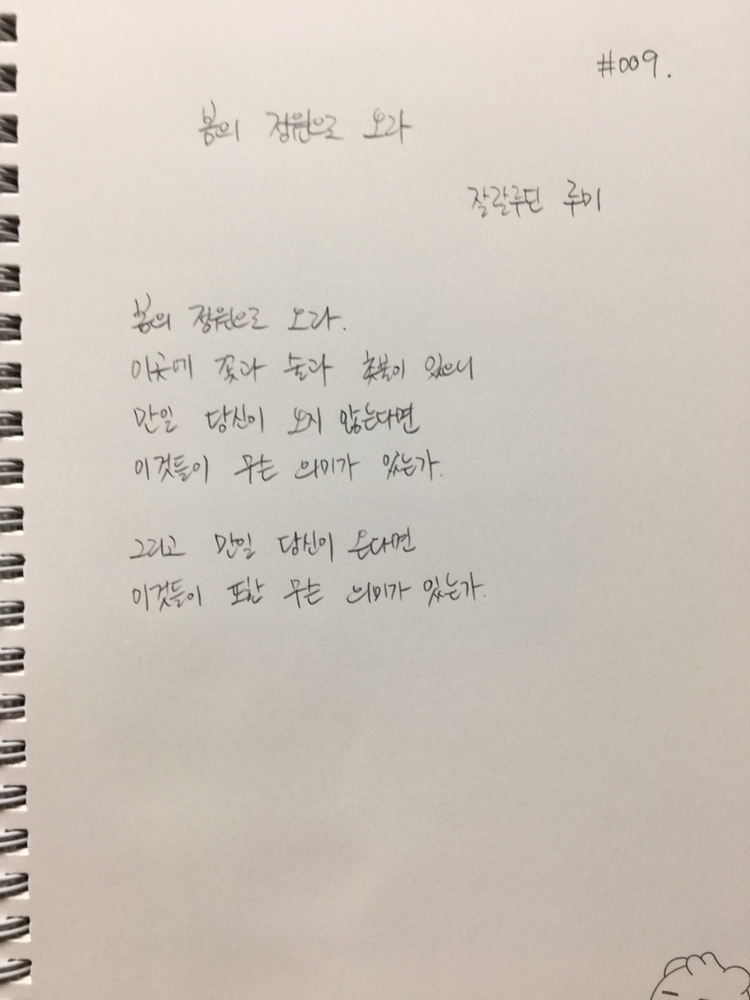 #009.
봄의 정원으로 오라
잘랄루딘 루미
봄의 정원으로 오라.
이곳에 꽃과 술과 촛불이 있으니
만일 당신이 오지 않는다면
이것들이 무슨 의미가 있는가.
그리고 만일 당신이 온다면
이것들이 또한 무슨 의미가 있는가.